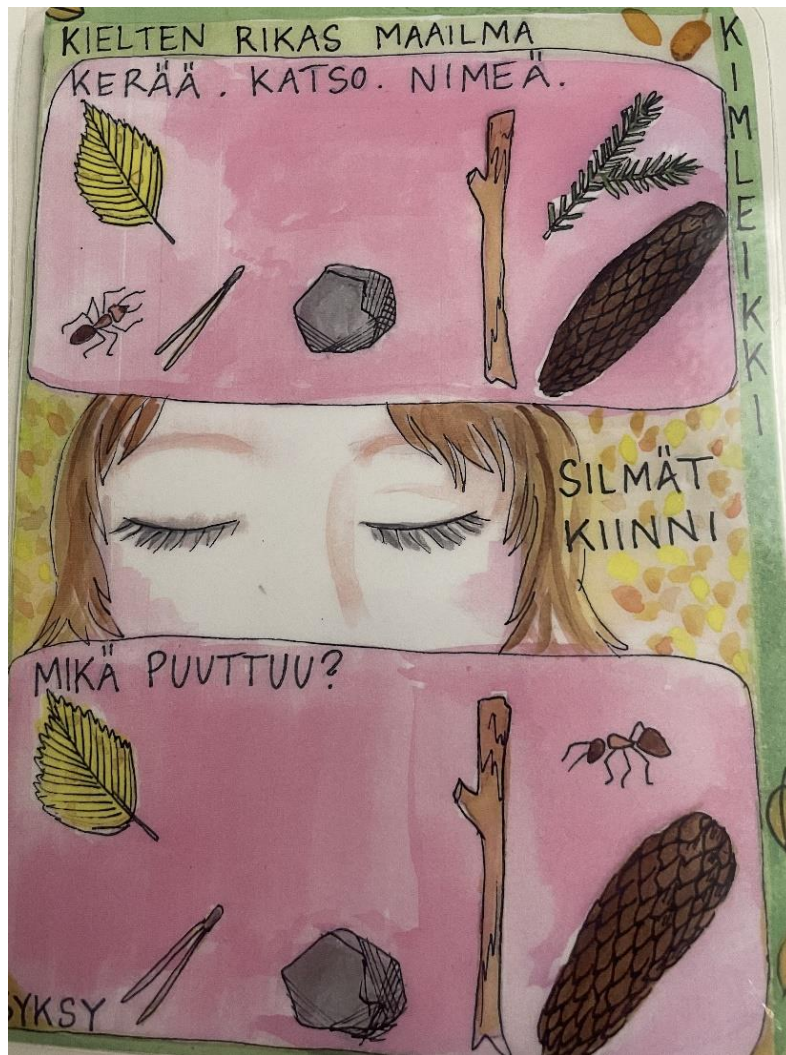 KIELTEN RIKAS MAAILMA
KERÄÄ. KATSO. NIMEÄ.
KIMLEIKKI
SILMÄT
KIINNI
MIKÄ PUUTTUU?
SYKSY